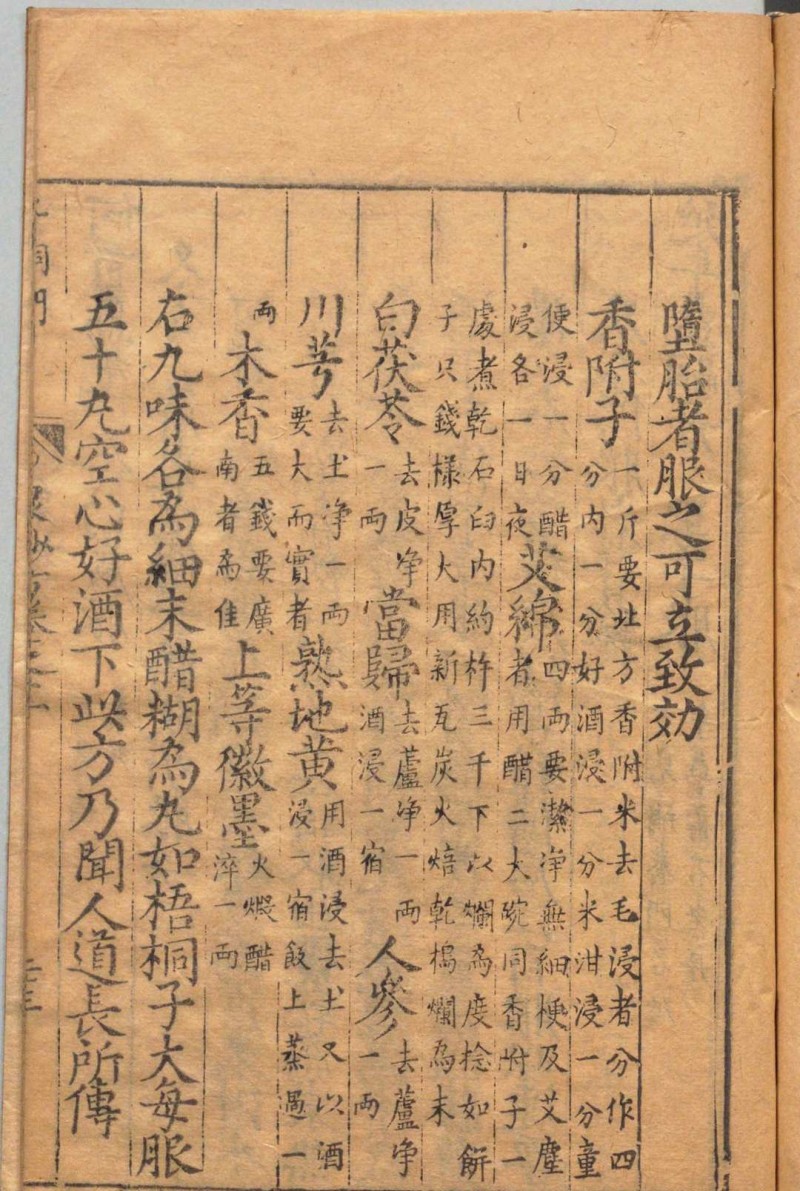 墮胎者服之可立致効
香附子一斤要北方香附米去毛浸者分作四分内一分好酒浸一分米泔浸一分童
便浸一分醋浸各一日夜艾綿四兩要潔净無細梗及艾塵者用醋二大碗同香附子一
處煮乾石臼内約杵三千下以爛為度捻如餅子只錢樣厚大用新瓦炭火焙乾搗爛為末
白茯苓去皮净一兩當歸去蘆净一兩酒浸一宿人參去蘆净一兩
川芎去土净一兩要大而實者熟地黄用酒浸去土又以酒浸一宿飯上蒸過一
兩木香五錢要廣南者為佳上等徽墨火煅醋淬一兩
右九味各為細末醋糊為丸如梧桐子大每服
五十丸空心好酒下此方乃聞人道長所傳